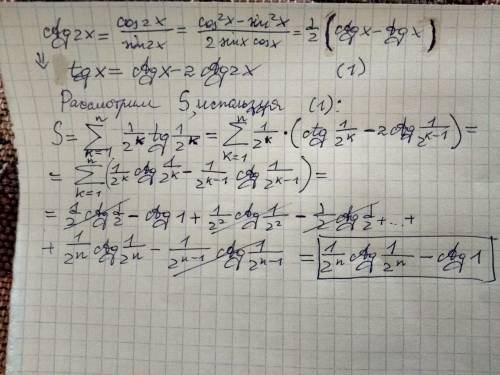 ctg2x = cos2x/sin2x = (cos²x - sin²x)/(2 sinx cosx) = 1/2 (ctgx - tgx)
⇓ tgx = ctgx - 2ctg2x (1)
Рассмотрим S, используя (1):
S = ∑_{k=1}^{n} 1/2^k tg 1/2^k = ∑_{k=1}^{n} 1/2^k · (ctg 1/2^k - 2ctg 1/2^{k-1}) =
= ∑_{k=1}^{n} (1/2^k ctg 1/2^k - 1/2^{k-1} ctg 1/2^{k-1}) =
= 1/2 ctg 1/2 - ctg 1 + 1/2² ctg 1/2² - 1/2 ctg 1/2 + ... +
+ 1/2^n ctg 1/2^n - 1/2^{n-1} ctg 1/2^{n-1} = 1/2^n ctg 1/2^n - ctg 1